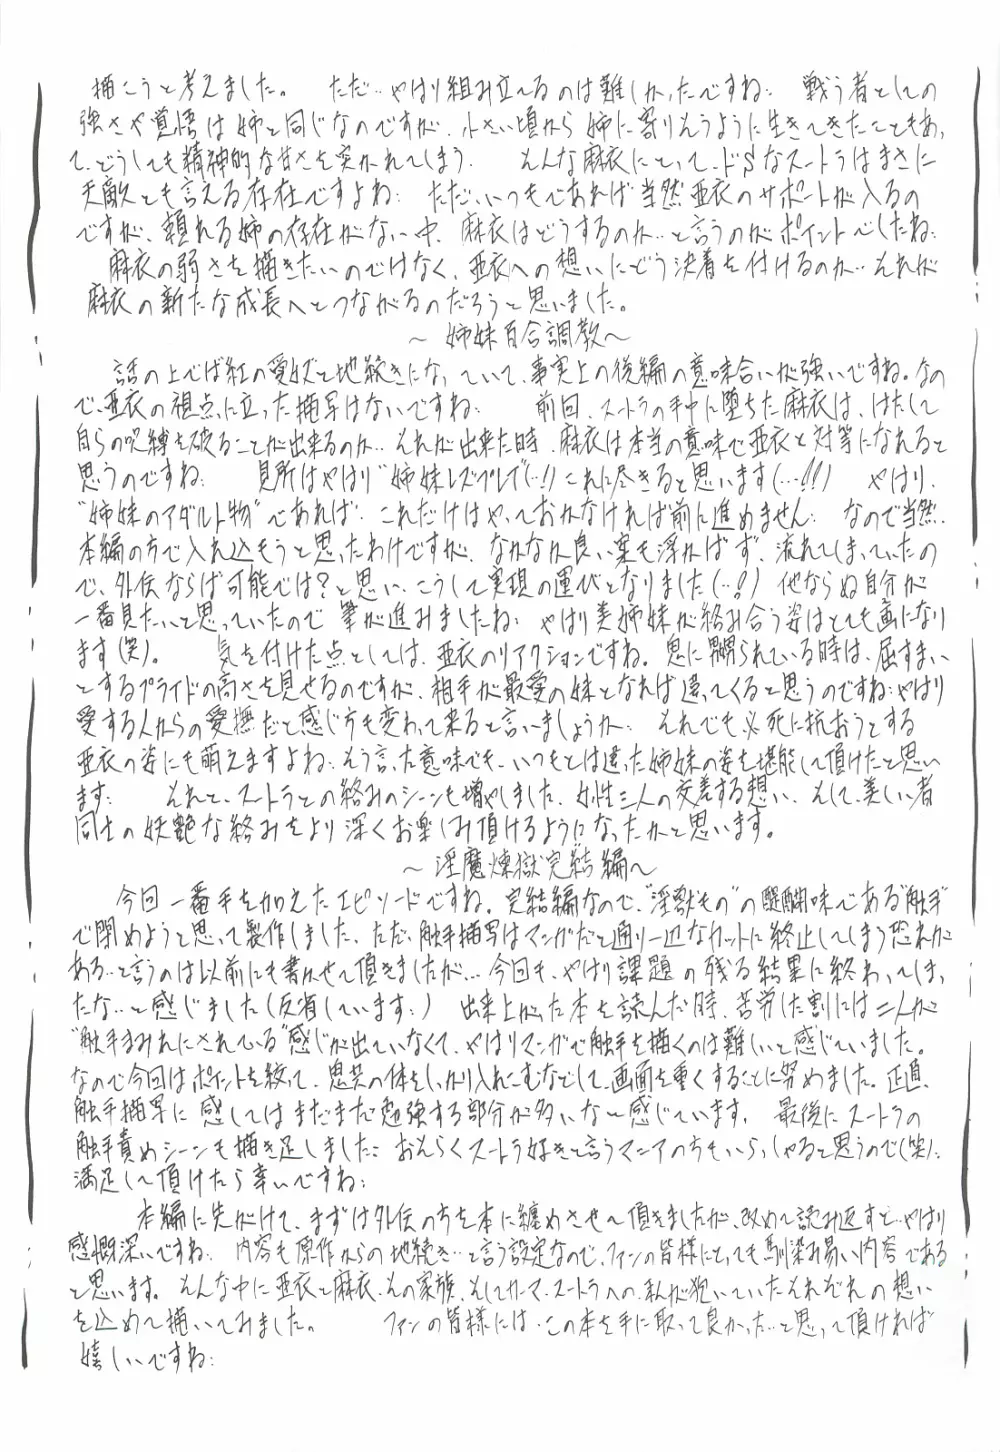 描こうと考えました。 ただ…やはり組み立てるのは難しかったですね… 戦う者としての
強さや覚悟は姉と同じなのですが、小さい頃から姉に寄りそうように生きてきたこともあっ
て、どうしても精神的な甘さを突かれてしまう… そんな麻衣にとって、ドSなスートラはまさに
天敵とも言える存在ですよね… ただ、いつもであれば当然亜衣のサポートが入るの
ですが、頼れる姉の存在がない中、麻衣はどうするのか…と言うのがポイントでしたね…
麻衣の弱さを描きたいのではなく、亜衣への想いにどう決着を付けるのか…それが
麻衣の新たな成長へとつながるのだろうと思いました。
～姉妹百合調教～
話の上では紅の愛奴と地続きになっていて、事実上の後編の意味合いが強いですね。なの
で、亜衣の視点に立った描写はないですね… 前回、スートラの手中に堕ちた麻衣は、はたして
自らの呪縛を破ることが出来るのか…それが出来た時、麻衣は本当の意味で亜衣と対等になれると
思うのですね… 見所はやはり"姉妹レズプレイ"(…!)これに尽きると思います(…!!) やはり、
"姉妹のアダルト物"であれば…これだけはやっておかなければ前に進めません… なので当然、
本編の方で入れ込もうと思ったわけですが、なかなか良い案も浮かばず、流れてしまっていたの
で、外伝ならば可能では?と思い、こうして実現の運びとなりました(…!) 他ならぬ自分が
一番見たいと思っていたので筆が進みましたね… やはり美姉妹が絡み合う姿はとても画になり
ます(笑)。 気を付けた点としては、亜衣のリアクションですね。鬼に嬲られている時は、屈すまい
とするプライドの高さを見せるのですが、相手が最愛の妹となれば違ってくると思うのですね…やはり
愛する人からの愛撫だと感じ方も変わって来ると言いましょうか… それでも必死に抗おうとする
亜衣の姿にも萌えますよね…そう言った意味でも、いつもとは違った姉妹の姿を堪能して頂けたと思い
ます… それと、スートラとの絡みのシーンも増やしました、女性三人の交差する想い、そして、美しい者
同士の妖艶な絡みをより深くお楽しみ頂けるようになったかと思います。
～淫魔煉獄完結編～
今回一番手を加えたエピソードですね。完結編なので、"淫獣もの"の醍醐味である"触手"
で閉めようと思って製作しました、ただ、触手描写はマンガだと通り一辺なカットに終止してしまう恐れが
ある…と言うのは以前にも書かせて頂きましたが…今回も、やはり課題の残る結果に終わってしまっ
たな…と感じました(反省しています…) 出来上がった本を読んだ時、苦労した割には二人が
"触手まみれにされている"感じが出ていなくて、やはりマンガで触手を描くのは難しいと感じていました。
なので今回はポイントを絞って、鬼共の体をしっかり入れこむなどして、画面を重くすることに努めました。正直、
触手描写に感してはまだまだ勉強する部分が多いな～感じています。 最後にスートラの
触手責めシーンも描き足しました…おそらくスートラ好きと言うマニアの方もいらっしゃると思うので(笑)…
満足して頂けたら幸いですね…
本編に先がけて、まずは外伝の方を本に纏めさせて頂きましたが、改めて読み返すと…やはり
感慨深いですね… 内容も原作からの地続き…と言う設定なので、ファンの皆様にとっても馴染み易い内容である
と思います。 そんな中に亜衣と麻衣、その家族、そしてカーマ、スートラへの、私が抱いていたそれぞれの想い
を込めて描いてみました。 ファンの皆様には、この本を手に取って良かった…と思って頂ければ
嬉しいですね…